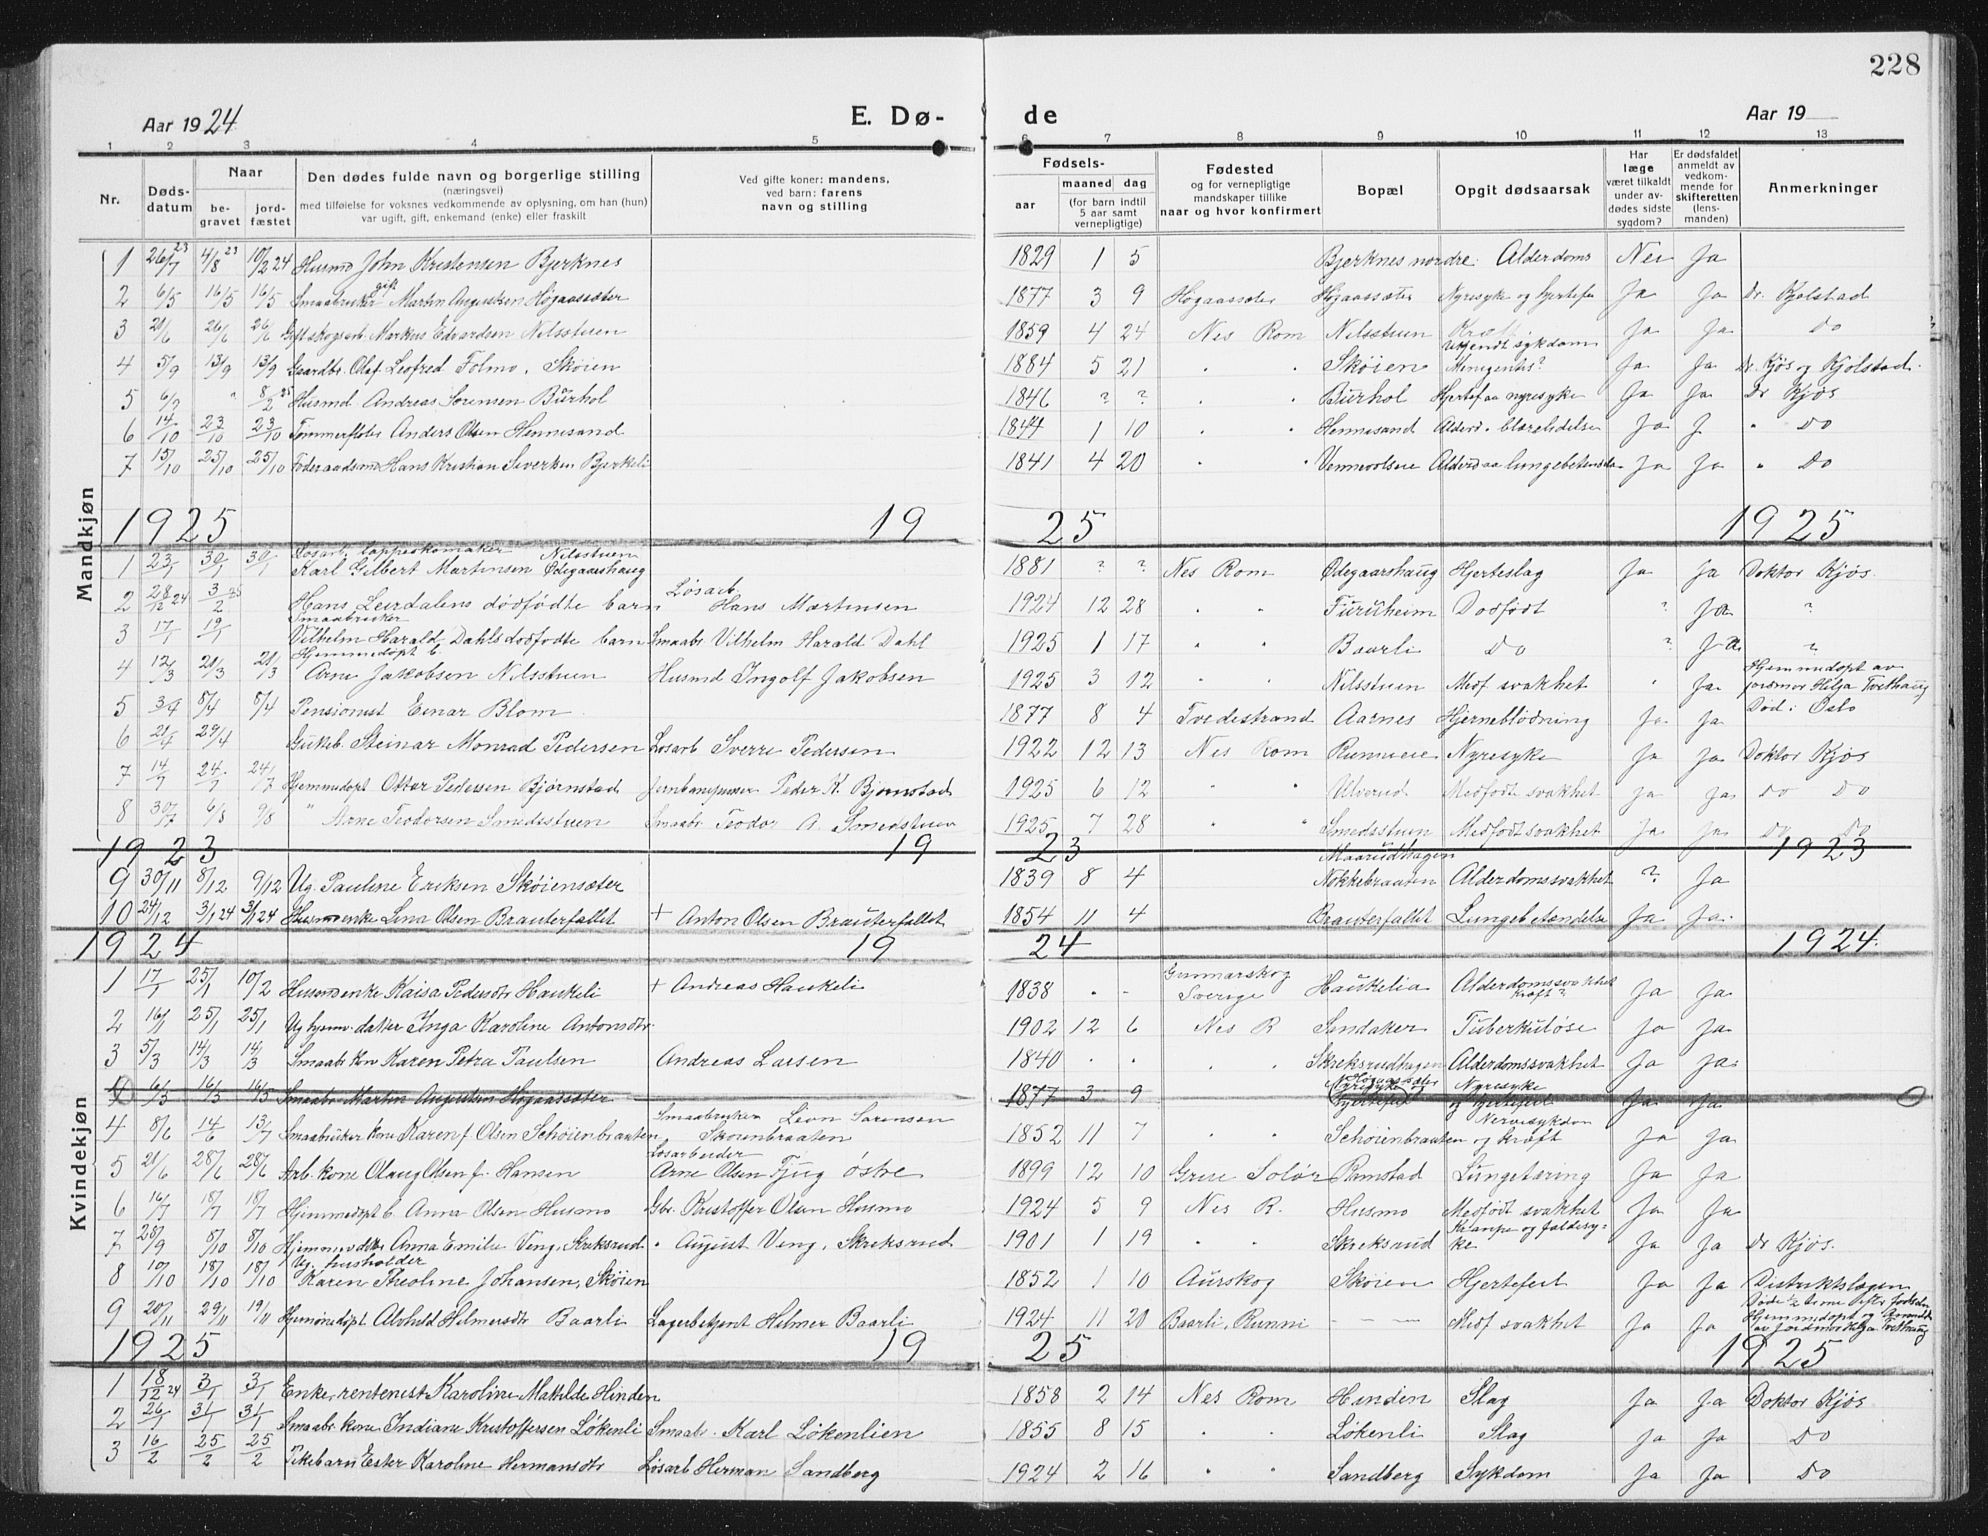 228
Aar 1924 E. Dø- de Aar 19
1 2 3 4 5 6 7 8 9 10 11 12 13
Nr. Døds-datum Naar be-gravet jord-fæstet
Den dødes fulde navn og borgerlige stilling (næringsvei) med tilføielse for voksnes vedkommende av oplysning, om han (hun) var ugift, gift, enkemand (enke) eller fraskilt
Ved gifte koner: mandens, ved barn: farens navn og stilling
Fødsels- aar maaned dag (for barn indtil 5 aar samt vernepligtige)
Fødested og for vernepligtige mandskaper tillike naar og hvor konfirmert
Bopæl
Opgit dødsaarsak
Har læge været tilkaldt under av-dødes sidste sygdom?
Er dødsfaldet anmeldt av vedkom-mende for skifteretten (lens-manden)
Anmerkninger
Mandkjøn
1 26/7 23 4/8 23 10/2 24 Husmd John Kristensen Bjerknes 1829 1 5 Bjerknes nordre Alderdoms Nei Ja
2 6/5 16/5 16/5 Smaabruker gift Martin Augustsen Högaassæter 1877 3 9 Högaassæter Högaassæter Nyresyke og hjertefei Ja Ja Dr. Kjolstad
3 21/6 26/6 26/6 Gift skogsarb. Markus Edvardsen Nilsstuen 1859 4 24 Nes Rom Nilsstuen Kræft Ja Ja Do
4 5/9 13/9 13/9 Gaardbr. Olaf Leofred Folmo, Skøien 1884 5 21 " " Skøien Ukjendt sykdom Menigentis? Ja Ja Dr. Kjøs og Kjölstad.
5 6/7 " 8/2 25 Husmd Andreas Sörensen Bürhol 1846 ? ? " Bürhol Hjertef aa nyresyke Ja Ja Dr Kjøs
6 14/10 23/10 23/10 Tømmerfløter Anders Olsen Hennesand 1844 1 10 " " Hennesand Alderd. blærelidelse Ja J. " Do
7 15/10 25/10 25/10 Føderaadsmd Hans Kristian Siverksen Bjerkeli 1841 4 20 " " Vennevolseie Alderd aa lungebetændse Ja Ja " Do
1925 19 25 1925
1 23/1 30/1 30/1 Løsarb. lappeskomaker Karl Gilbert Martinsen Nilsstuen Ødegaarshaug 1881 ? ? Nes Rom Ødegaarshaug Hjerteslag Ja Ja Doktor Kjøs.
2 28/12 24 3/2 25 Hans Leirdalens dödfödte barn Løsarb. Hans Martinsen 1924 12 28 " " Furuheim Dodfödt ? Ja "
3 17/1 19/1 Smaabruker Vilhelm Harald Dahls dodfodte barn Smaabr Vilhelm Harald Dahl 1925 1 17 " " Baarli Do ? Ja "
4 12/3 21/3 21/3 Hjemmedöpt b Arne Jakobsen Nilsstuen Husmd Ingolf Jakobsen 1925 3 12 " " Nilsstuen Medf svakhet " Ja Hjemmedøpt av jordmor Hilja Tvethaug
5 3/4 8/4 8/4 Pensionist Einar Blom 1877 8 4 Tvedestrand Aarnes Hjerneblödning Ja Ja Død i Oslo
6 21/4 29/4 Gukeb. Steinar Monrad Pedersen Løsarb Sverre Pedersen 1922 12 13 Nes Rom Runnieie Nyresyke Ja Ja Doktor Kjøs
7 14/7 24/7 24/7 Hjemmedøpt Ottar Pedersen Bjørnstad Jernbanepusser Peder K. Bjørnstad 1925 6 12 " " Ulverud Medfödte svakhet Ja Ja Do Do
8 30/7 6/8 9/8 " Arne Teodorsen Smedsstuen Smaabr Teodor A. Smedstuen 1925 7 28 " " Smedsstuen Medfödt svakhet Ja Ja Do Do
1923 19 23 1923
9 30/11 8/12 9/12 Ug. Pauline Eriksen Skøiensæter 1839 8 4 Maarudhagen Nokkebraaten Alderdomssvakhet ? Ja
10 24/12 3/1 24 3/1 24 Husmd enke Lina Olsen Brauterfallet + Anton Olsen Brauterfallet 1854 11 4 Brauterfallet Lungebetændelse Ja Ja.
1924 19 24 1924.
Kvindekjøn
1 17/1 25/1 10/2 Husmd enke Kaisa Pedersdtr Haukeli + Andreas Haukeli 1838 " " Gunnarskog Sverige Haukelia Alderdomssvakhet Kræft? Ja Ja
2 16/1 25/1 25/1 Ug hjemv. datter Inga Karoline Antonsdtr. 1902 12 6 Nes R Sandaker Tuberkulöse Ja Ja
3 5/3 14/3 14/3 Smaabr kn Karen Petra Paulsen Andreas Larsen 1840 " " Skreksrudhagen Alderdomssvakhet Ja Ja
4 6/5 16/5 16/5 Smaabr Martin Augustsen Högaassæter 1877 3 9 Högaassæter Nyresyke Hjertefeil Nyresyke og hjertefeil Ja Ja
4 8/6 14/6 13/7 Smaabruker kone Karen f. Olsen Schöienbraaten Smaabruker Lion Sørensen Skoienbraaten 1852 11 7 " " Schöienbraaten Nervesykdom og Kræft Ja Ja
5 21/6 28/6 28/6 Arb. kone Olaug Olsen f. Hansen Løsarbeider Arne Olsen Fjug östre 1899 12 10 Grue Solør Ramstad Lungetæring Ja Ja
6 16/7 18/7 18/7 Hjemmedöpt b Anna Olsen Husmo Gbr. Kristoffer Olsen Husmo 1924 5 9 Nes R. Husmo Medfödt svakhet Ja Ja
7 28/9 8/10 8/10 Hjemmev dtr Anna Emilie Veng, Skreksrud " August Veng, Skreksrud 1901 1 19 " " Skreksrud Krampe og faldesyke Ja Ja Dr Kjøs.
8 10/10 18/10 18/10 Ug. husholder Karen Theoline Johansen, Skøien 1852 1 10 Aurskog Skøien Hjertefeil Ja Ja Distriktslægen
9 20/11 29/11 19/11 Hjemmedöpt Alvhild Helmersdtr Baarli Lagerbetjent Helmer Baarli 1924 11 20 Baarli, Runni — — — Medf svakhet Ja Ja Døde 1/2 time efter födselen Hjemmedøpt og Anmeldt av Jordmor Hilja Tvethaug
1925 19 25 1925
1 18/12 24 3/1 3/1 Enke, rentenist Karoline Matilde Hinden 1858 2 14 Nes Rom Henden Slag Ja Ja Doktor Kjøs
2 26/1 31/1 31/1 Smaabr kone Indiana Kristoffersen Løkenli Smaabr. Karl Løkenlien 1855 8 15 " " Løkenli Slag Ja Ja Do
3 16/2 25/2 25/2 Pikebarn Ester Karoline Hermansdtr Løsarb Herman Sandberg 1924 2 16 " " Sandberg Sykdom Ja Ja Do